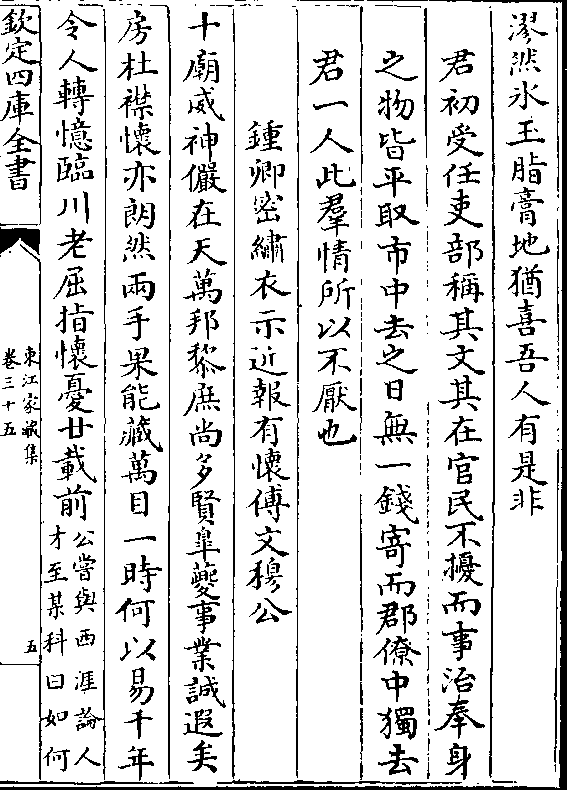 漻然氷玉脂膏地猶喜吾人有是非
君初受任吏部稱其文其在官民不擾而事治奉身
之物皆平取市中去之日無一錢寄而郡僚中獨去
君一人此羣情所以不厭也
鍾卿密繡衣示近報有懷傅文穆公
十廟威神儼在天萬邦黎庶尚多賢臯夔事業誠遐矣
房杜襟懷亦朗然兩手果能藏萬目一時何以易千年
令人轉憶臨川老屈指懷憂廿載前公嘗與西涯論人
才至某科曰如何
欽定四庫全書
東江家藏集
卷三十五
五